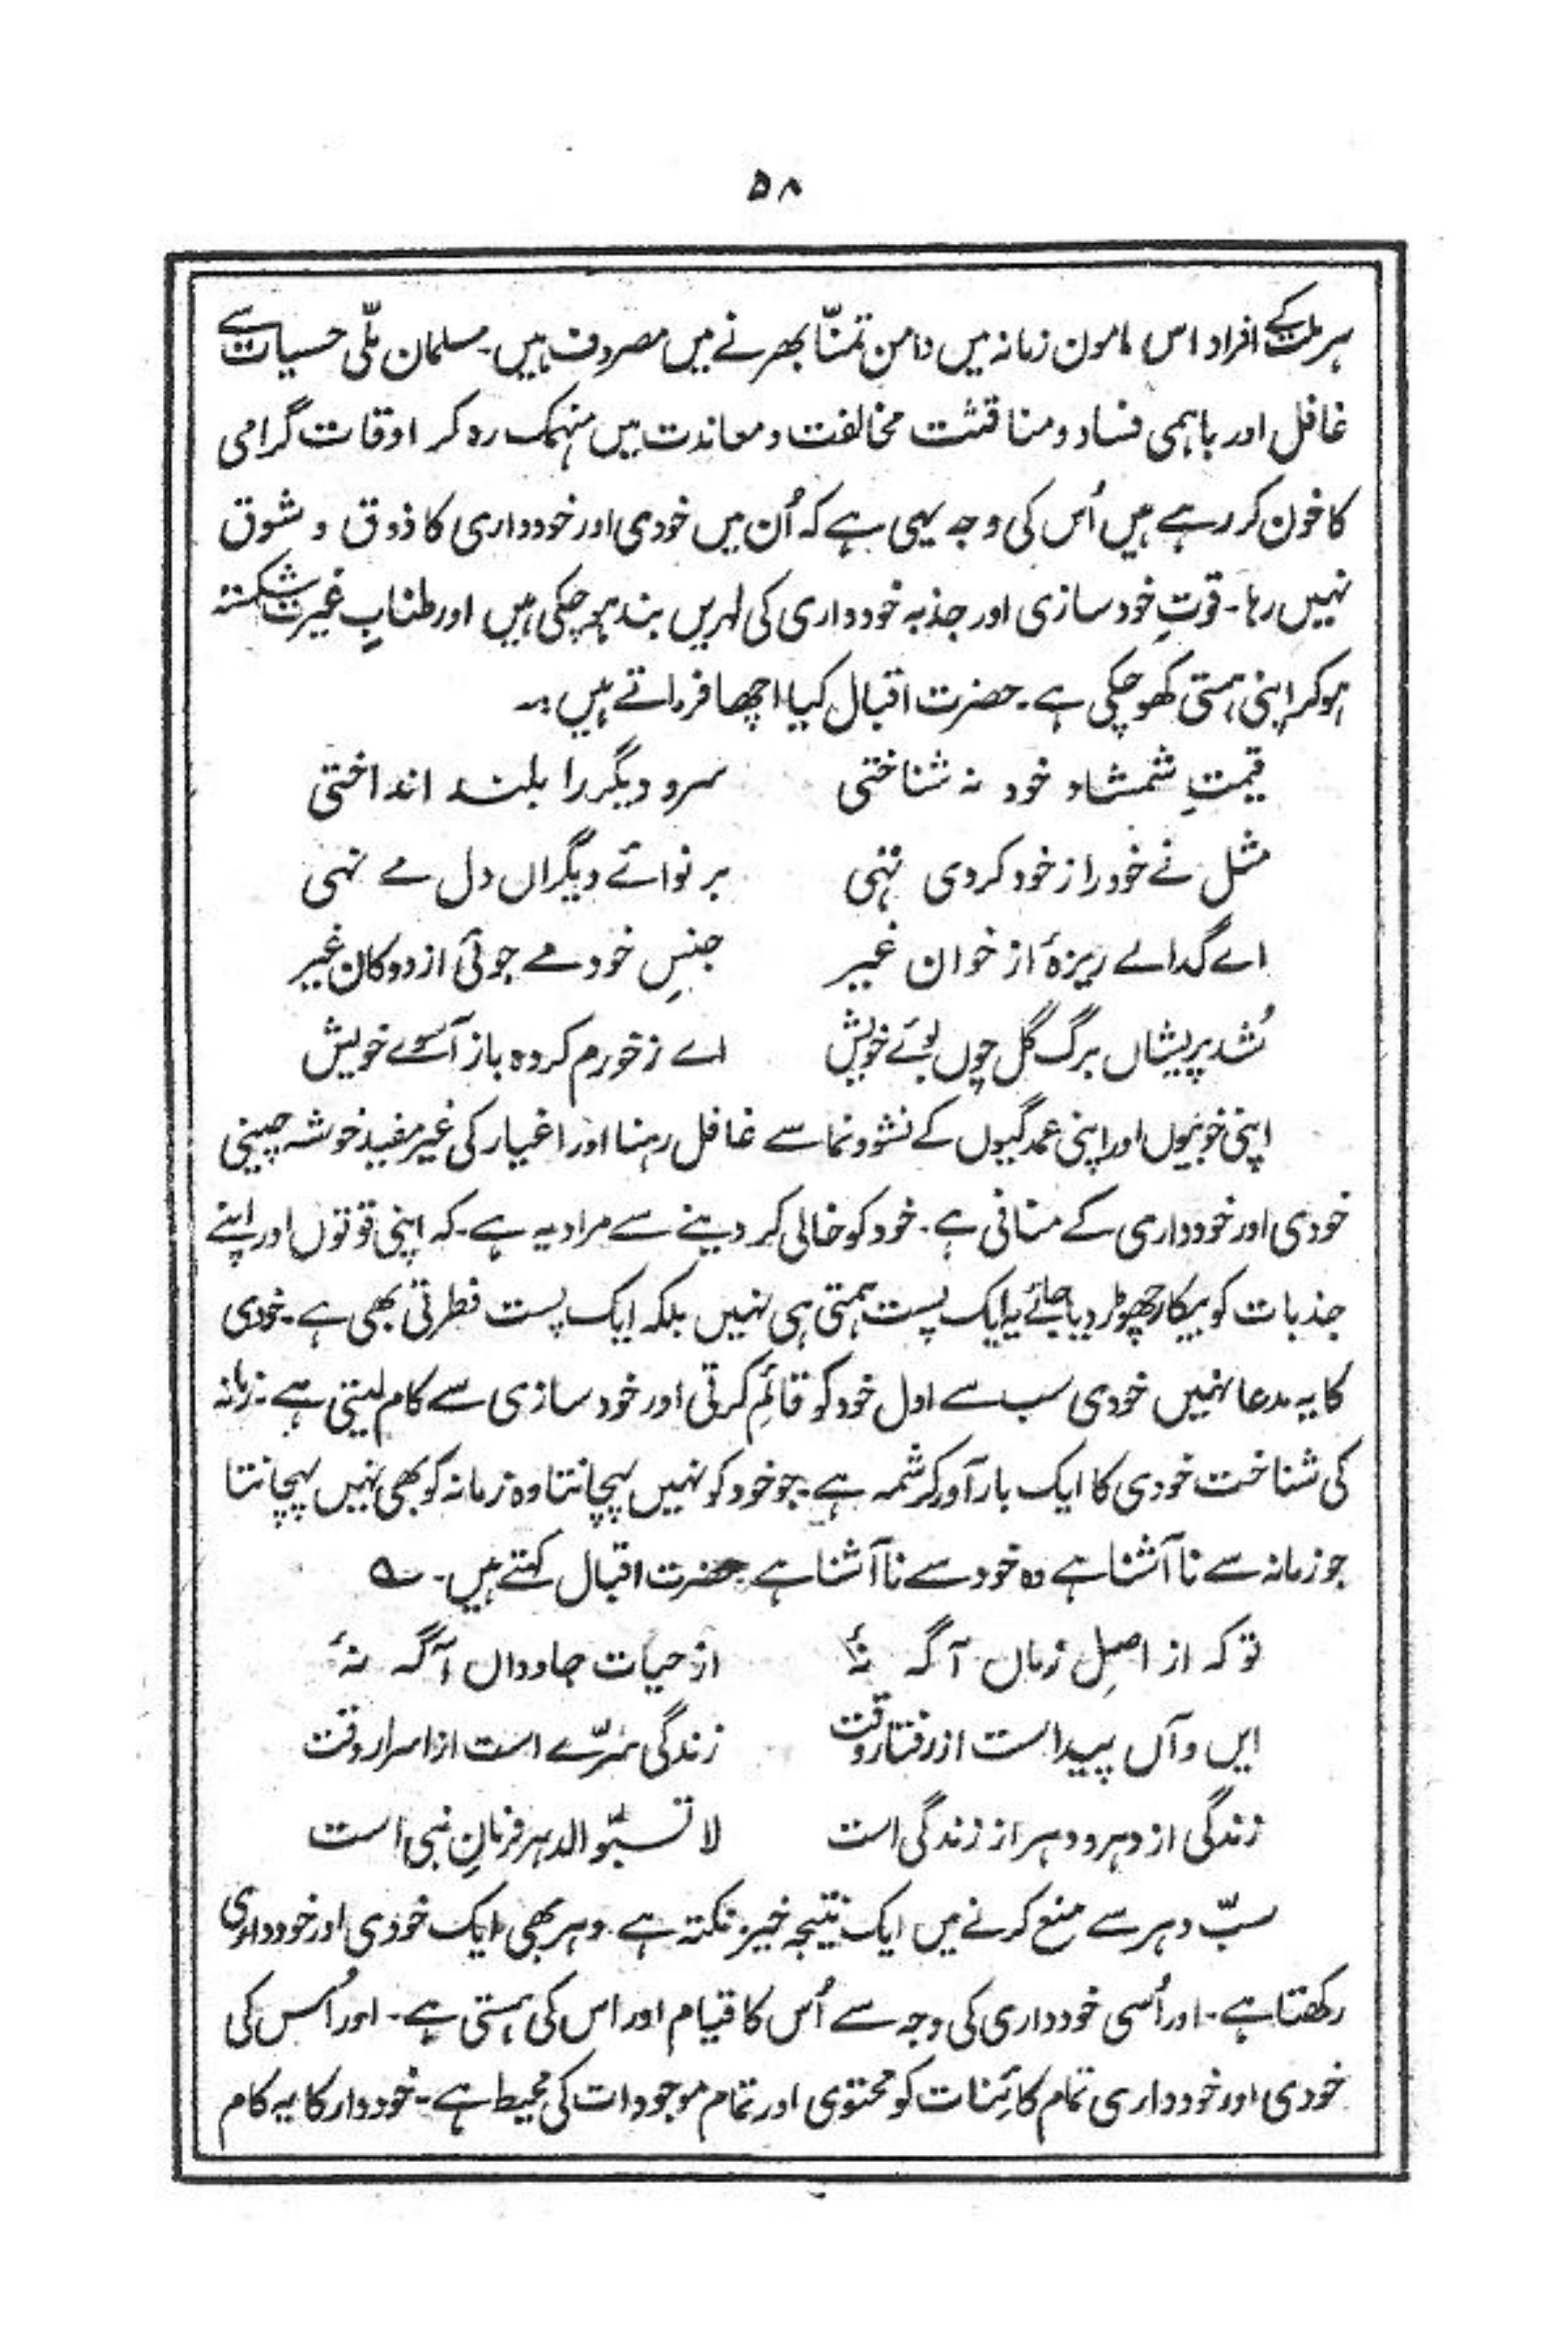 ۵۸
ہر ملت کے افراد اس مامون زمانہ میں دامن تمنّا بھرنے میں مصروف ہیں۔ مسلمان ملّی حسیات سے
غافل اور باہمی فساد و مناقشت مخالفت و معاندت میں منہمک رہ کر اوقات گرامی
کا خون کر رہے ہیں اُس کی وجہ یہی ہے کہ اُن میں خودی اور خودداری کا ذوق و شوق
نہیں رہا۔ قوتِ خود سازی اور جذبہ خودداری کی لہریں بند ہو چکی ہیں اور طنابِ غیرت شکستہ
ہو کر اپنی ہستی کھو چکی ہے۔ حضرت اقبال کیا اچھا فرماتے ہیں:۔
قیمتِ شمشاد خود نہ شناختی سرو دیگر را بلند انداختی
مثل نے خود را ز خود کردی تہی بر نوائے دیگراں دل مے نہی
اے گدائے ریزۂ از خوان غیر جنسِ خود مے جوئی از دوکان غیر
شُد پریشاں برگ گل چوں بوئے خویش اے ز خود رم کردہ باز آ سوئے خویش
اپنی خوبیوں اور اپنی عمدگیوں کے نشوونما سے غافل رہنا اور اغیار کی غیر مفید خوشہ چینی
خودی اور خودداری کے منافی ہے۔ خود کو خالی کر دینے سے مراد یہ ہے۔ کہ اپنی قوتوں اور اپنے
جذبات کو بیکار چھوڑ دیا جائے یہ ایک پست ہمتی ہی نہیں بلکہ ایک پست فطرتی بھی ہے۔ خودی
کا یہ مدعا نہیں خودی سب سے اول خود کو قائم کرتی اور خود سازی سے کام لیتی ہے۔ زمانہ
کی شناخت خودی کا ایک بارآور کرشمہ ہے۔ جو خود کو نہیں پہچانتا وہ زمانہ کو بھی نہیں پہچانتا
جو زمانہ سے ناآشنا ہے وہ خود سے ناآشنا ہے۔ حضرت اقبال کہتے ہیں۔ ؎
تو کہ از اصلِ زماں آگہ نۂ از حیات جاوداں آگہ نۂ
ایں و آں پیداست از رفتار وقت زندگی سِرّے است از اسرار وقت
زندگی از دہر و دہر از زندگی است لا تسبّو الدہر فرمانِ نبی است
سبّ دہر سے منع کرنے میں ایک نتیجہ خیز نکتہ ہے۔ دہر بھی ایک خودی اور خودداری
رکھتا ہے۔ اور اُسی خودداری کی وجہ سے اُس کا قیام اور اس کی ہستی ہے۔ اور اُس کی
خودی اور خودداری تمام کائنات کو محتوی اور تمام موجودات کی محیط ہے۔ خوددار کا یہ کام